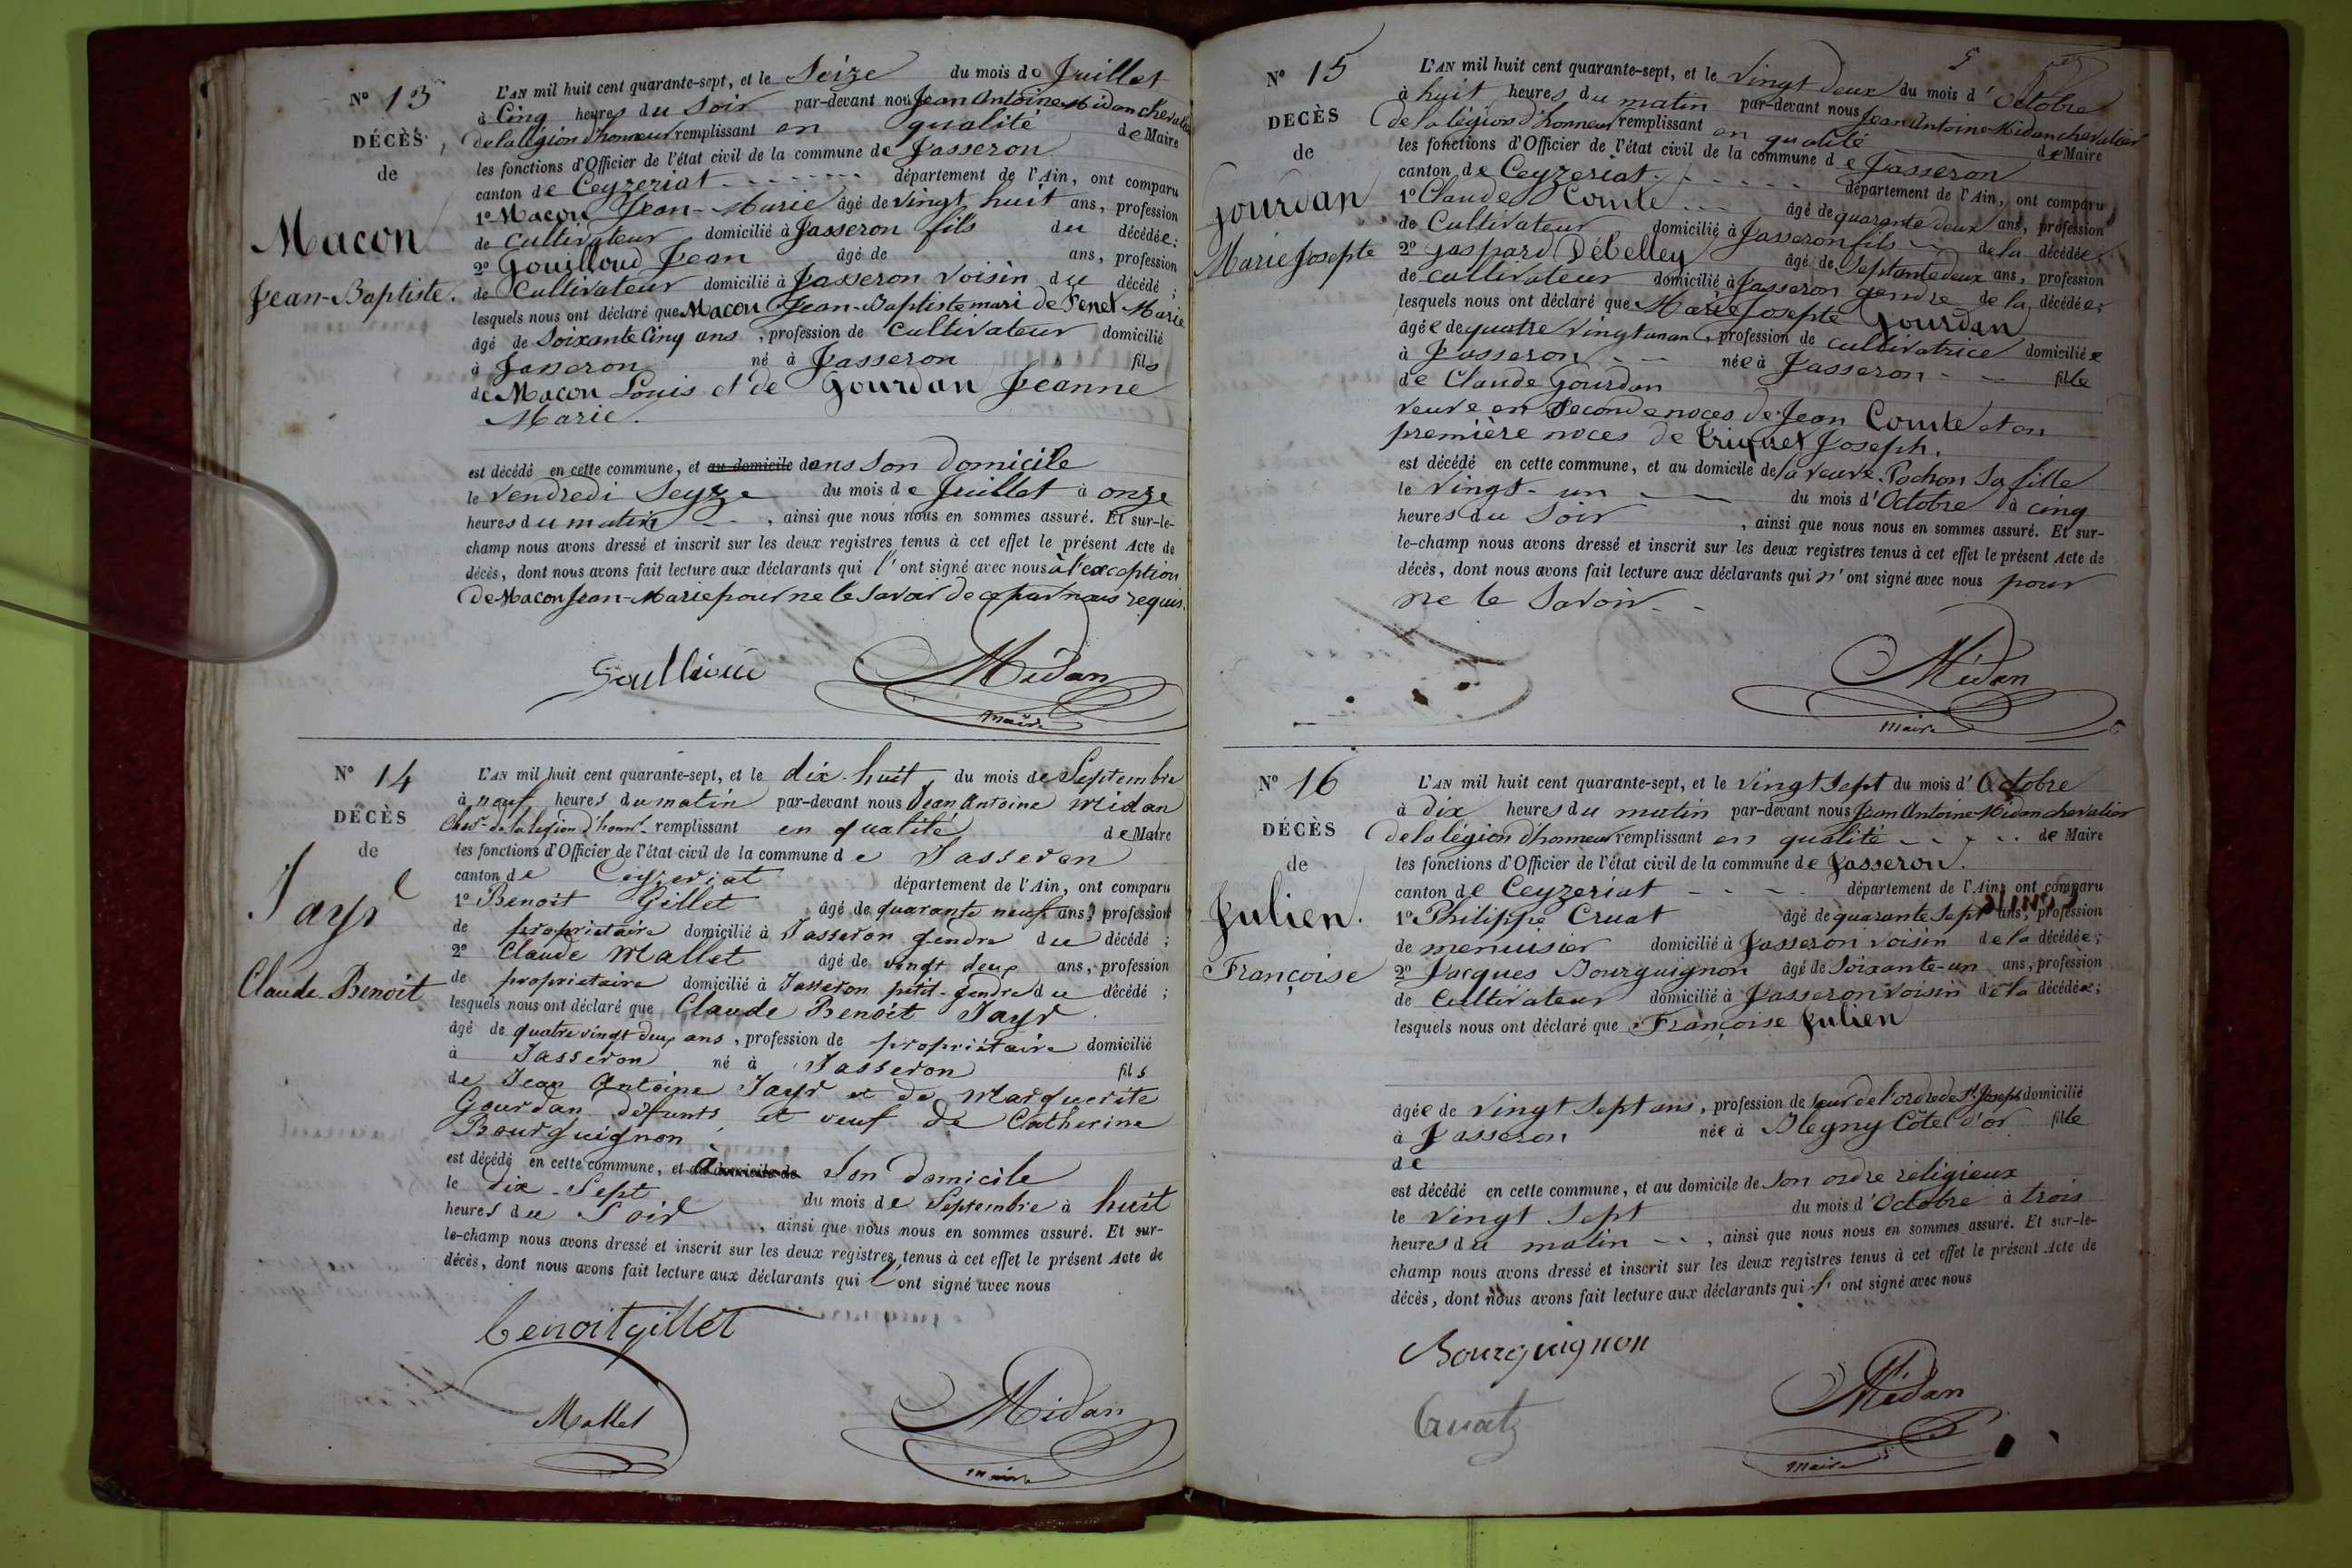 N° 13
DÉCÈS
de
Macon
Jean-Baptiste.
L'AN mil huit cent quarante-sept, et le Seize du mois de Juillet
à Cinq heures du Soir par-devant nous Jean Antoine Midan chevalier
de la légion d'honneur remplissant en qualité de Maire
les fonctions d'Officier de l'état civil de la commune de Jasseron
canton de Ceyzeriat département de l'Ain, ont comparu
1° Macon Jean-Marie âgé de vingt huit ans, profession
de Cultivateur domicilié à Jasseron fils du décédée;
2° Gouilloud Jean âgé de ans, profession
de Cultivateur domicilié à Jasseron voisin du décédé;
lesquels nous ont déclaré que Macon Jean-Baptiste mari de Marie
âgé de Soixante Cinq ans, profession de Cultivateur domicilié
à Jasseron né à Jasseron fils
de Macon Louis et de Gourdan Jeanne
Marie.
est décédé en cette commune, et au domicile dans Son Domicile
le Vendredi Seyze du mois de Juillet à onze
heures du matin, ainsi que nous nous en sommes assuré. Et sur-le-
champ nous avons dressé et inscrit sur les deux registres tenus à cet effet le présent Acte de
décès, dont nous avons fait lecture aux déclarants qui l'ont signé avec nous à l'exception
de Macon Jean-Marie pour ne le Savoir de ce par nous requis.
Goullioud
Midan
maire
N° 14
DÉCÈS
de
Jayr
Claude-Benoit
L'AN mil huit cent quarante-sept, et le dix-huit du mois de Septembre
à neuf heures du matin par-devant nous Jean Antoine Midan
Chevr de la legion d'honnr remplissant en qualité de Maire
les fonctions d'Officier de l'état civil de la commune de Jasseron
canton de Ceyzeriat département de l'Ain, ont comparu
1° Benoit Gillet âgé de quarante neuf ans, profession
de propriétaire domicilié à Jasseron gendre du décédé;
2° Claude Mallet âgé de vingt deux ans, profession
de propriétaire domicilié à Jasseron petit-gendre du décédé;
lesquels nous ont déclaré que Claude Benoit Jayr
âgé de quatre vingt deux ans, profession de propriétaire domicilié
à Jasseron né à Jasseron fils
de Jean Antoine Jayr et de Marguerite
Gourdan défunts, et veuf de Catherine
Bourguignon
est décédé en cette commune, et au domicile de à Son domicile
le dix-Sept du mois de Septembre à huit
heures du Soir, ainsi que nous nous en sommes assuré. Et sur-
le-champ nous avons dressé et inscrit sur les deux registres tenus à cet effet le présent Acte de
décès, dont nous avons fait lecture aux déclarants qui l'ont signé avec nous
benoit gillet
Mallet
Midan
maire
5
N° 15
DÉCÈS
de
Gourdan
Marie Josepte
L'AN mil huit cent quarante-sept, et le Vingt deux du mois d'Octobre
à huit heures du matin par-devant nous Jean Antoine Midan chevalier
de la légion d'honneur remplissant en qualité de Maire
les fonctions d'Officier de l'état civil de la commune de Jasseron
canton de Ceyzeriat département de l'Ain, ont comparu
1° Claude Comte âgé de quarante deux ans, profession
de Cultivateur domicilié à Jasseron fils de la décédée;
2° Gaspard Débelley âgé de Septante deux ans, profession
de cultivateur domicilié à Jasseron gendre de la décédée;
lesquels nous ont déclaré que Marie Josepte Gourdan
âgée de quatre vingt un an, profession de cultivatrice domiciliée
à Jasseron née à Jasseron fille
de Claude Gourdan
veuve en Seconde noces de Jean Comte et en
première noces de Joseph.
est décédé en cette commune, et au domicile de la veuve Pochon Sa fille
le Vingt-un du mois d'Octobre à cinq
heures du Soir, ainsi que nous nous en sommes assuré. Et sur-
le-champ nous avons dressé et inscrit sur les deux registres tenus à cet effet le présent Acte de
décès, dont nous avons fait lecture aux déclarants qui n'ont signé avec nous pour
ne le Savoir
Midan
maire
N° 16
DÉCÈS
de
Julien.
Françoise
L'AN mil huit cent quarante-sept, et le Vingt Sept du mois d'Octobre
à dix heures du matin par-devant nous Jean Antoine Midan chevalier
de la légion d'honneur remplissant en qualité de Maire
les fonctions d'Officier de l'état civil de la commune de Jasseron.
canton de Ceyzeriat département de l'Ain, ont comparu
1° Philippe Cruat âgé de quarante Sept ans, profession
de menuisier domicilié à Jasseron voisin de la décédée;
2° Jacques Bourguignon âgé de Soixante-un ans, profession
de Cultivateur domicilié à Jasseron voisin de la décédée;
lesquels nous ont déclaré que Françoise Julien
âgée de Vingt Sept ans, profession de Seur de l'ordre de St Joseph domicilié
à Jasseron née à Blegny Côte d'or fille
de
est décédé en cette commune, et au domicile de Son ordre religieux
le Vingt Sept du mois d'Octobre à trois
heures du matin, ainsi que nous nous en sommes assuré. Et sur-le-
champ nous avons dressé et inscrit sur les deux registres tenus à cet effet le présent Acte de
décès, dont nous avons fait lecture aux déclarants qui l'ont signé avec nous
Bourguignon
Cruat
Midan
maire